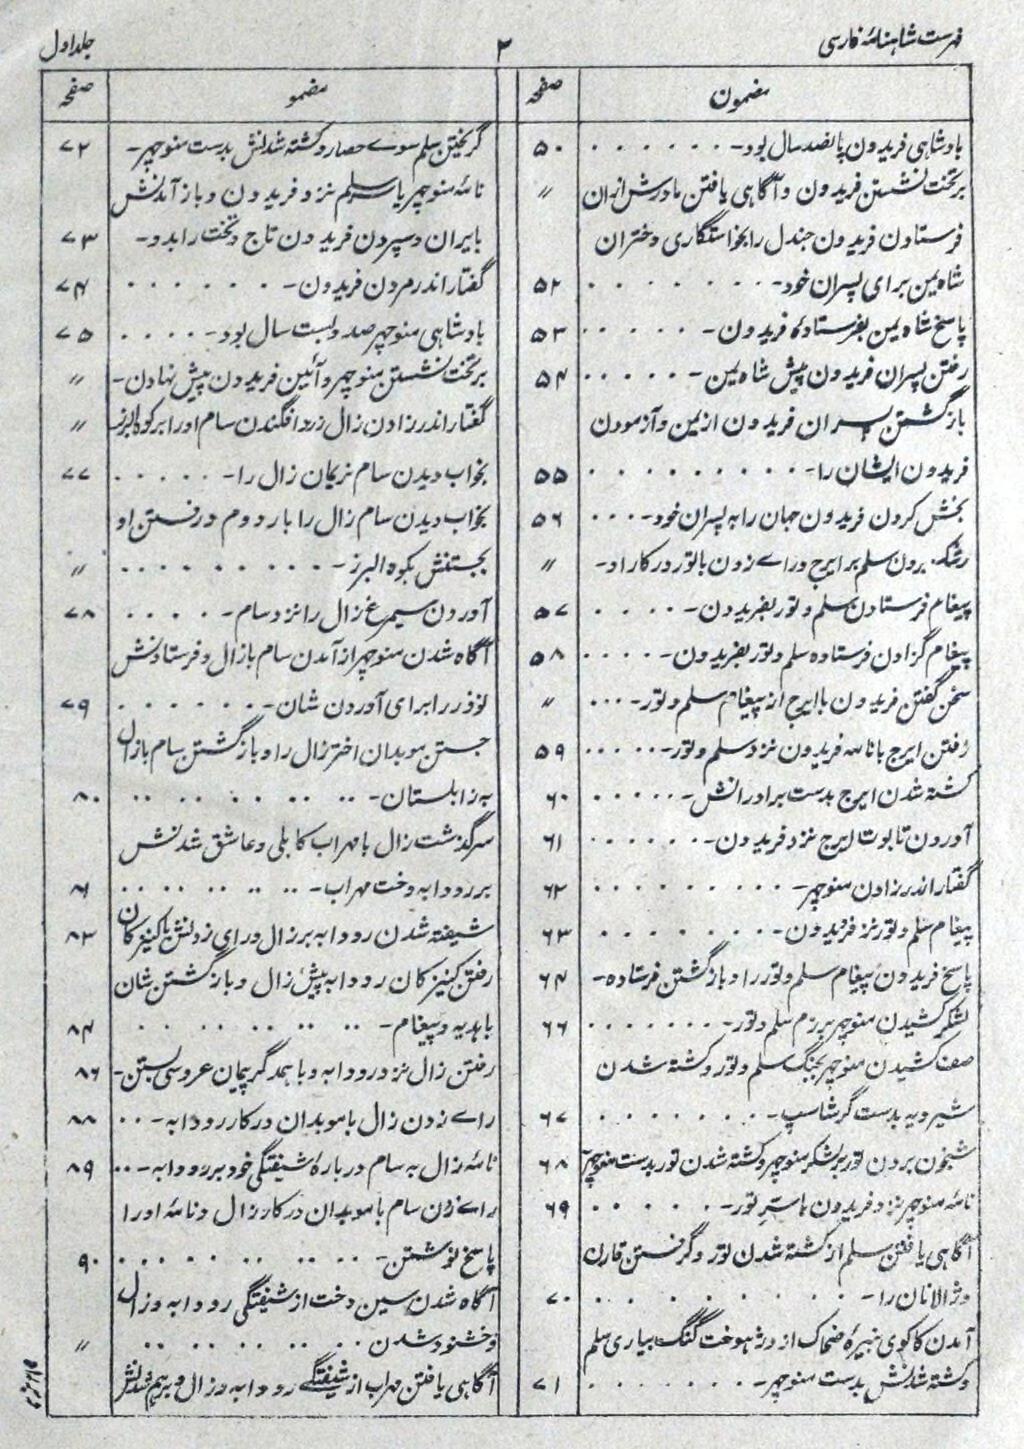 فهرست شاهنامهٔ فارسی
۲
جلد اول
مضمون
صفحہ
بادشاهی فریدون پانصد سال بود۔ ۵۰
برتخت نشستن فریدون و آگاهی یافتن مادرش ازان ״
فرستادن فریدون جندل را بخواستگاری دختران
شاه یمن برای پسران خود۔ ۵۲
پاسخ شاه یمن بفرستادهٔ فریدون۔ ۵۳
رفتن پسران فریدون پیش شاه یمن۔ ۵۴
بازگشتن پسران فریدون از یمن و آزمودن
فریدون ایشان را۔ ۵۵
بخش کردن فریدون جهان را به پسران خود۔ ۵۶
رشک بردن سلم بر ایرج و راے زدن با تور در کار او۔ ״
پیغام فرستادن سلم و تور بفریدون۔ ۵۷
پیغام گزاردن فرستاده سلم و تور بفریدون۔ ۵۸
سخن گفتن فریدون با ایرج از پیغام سلم و تور۔ ״
رفتن ایرج با نامه فریدون نزد سلم و تور۔ ۵۹
کشته شدن ایرج بدست برادرانش۔ ۶۰
آوردن تابوت ایرج نزد فریدون۔ ۶۱
گفتار اندر زادن منوچهر۔ ۶۲
پیغام سلم و تور نزد فریدون۔ ۶۳
پاسخ فریدون پیغام سلم و تور را و بازگشتن فرستاده۔ ۶۴
لشکر کشیدن منوچهر برزم سلم و تور۔ ۶۶
صف کشیدن منوچهر بجنگ سلم و تور و کشته شدن
شیرویه بدست گرشاسپ۔ ۶۷
شبخون بردن تور بر لشکر منوچهر و کشته شدن تور بدست منوچهر ۶۸
نامهٔ منوچهر نزد فریدون با سرِ تور۔ ۶۹
آگاهی یافتن سلم از کشته شدن تور و گرفتن قارن
دژ الانان را۔ ۷۰
آمدن کاکوی نبیرهٔ ضحاک از دژ هوخت گنگ بیاری سلم
و کشته شدنش بدست منوچهر۔ ۷۱
مضمو
صفحہ
گریختن سلم سوے حصار و کشته شدنش بدست منوچهر۔ ۷۲
نامهٔ منوچهر با سر سلم نزد فریدون و باز آمدنش
بایران و سپردن فریدون تاج و تخت را بدو۔ ۷۳
گفتار اندر مردن فریدون۔ ۷۴
بادشاهی منوچهر صد و بست سال بود۔ ۷۵
برتخت نشستن منوچهر و آئین فریدون پیش نهادن۔ ״
گفتار اندر زادن زال زر و افگندن سام او را بر کوه البرز ״
بخواب دیدن سام نریمان زال را۔ ۷۷
بخواب دیدن سام زال را بار دوم و رفتن او
بجستنش بکوه البرز۔ ״
آوردن سیمرغ زال را نزد سام۔ ۷۸
آگاه شدن منوچهر از آمدن سام با زال و فرستادنش
نوذر را برای آوردن شان۔ ۷۹
جستن موبدان اختر زال را و بازگشتن سام با زال
به زابلستان۔ ۸۰
سرگذشت زال با مهراب کابلی و عاشق شدنش
بر رودابه دخت مهراب۔ ۸۱
شیفته شدن رودابه بر زال و رای زدنش با کنیزکان ۸۳
رفتن کنیزکان رودابه پیش زال و بازگشتن شان
با هدیه و پیغام۔ ۸۴
رفتن زال نزد رودابه و با همدگر پیمان عروسی بستن۔ ۸۶
راے زدن زال با موبدان در کار رودابه۔ ۸۸
نامهٔ زال به سام دربارهٔ شیفتگی خود بر رودابه۔ ۸۹
راے زدن سام با موبدان در کار زال و نامهٔ او را
پاسخ نوشتن۔ ۹۰
آگاه شدن سین دخت از شیفتگی رودابه و زال
و خشنود شدن ״
آگاهی یافتن مهراب از شیفتگے رودابه و زال و برهم شدنش